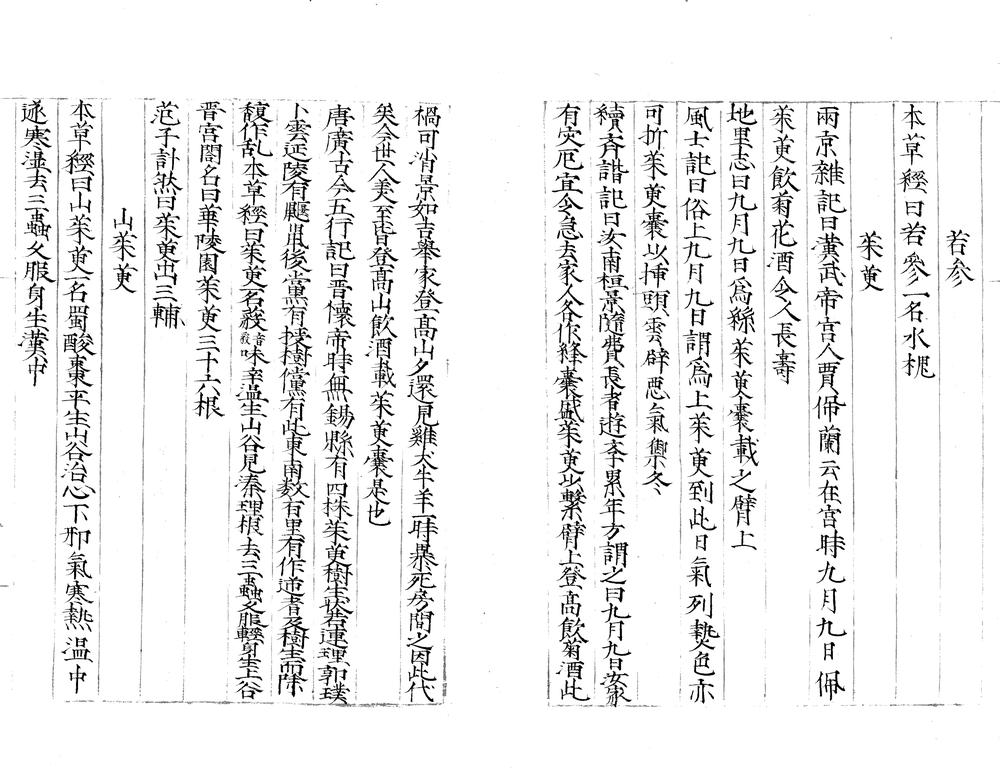 若参
本草經曰若參一名水槐
茱萸
兩京雜記曰漢武帝宫人賈佩蘭云在宫時九月九日佩
茱萸飲菊花酒令人長壽
地里志曰九月九日爲絲茱萸囊載之臂上
風土記曰俗上九月九日謂爲上茱萸到此日氣列熟色亦
可折茱萸囊以揷頭云辟惡氣禦冬〻
續齊諧記曰汝南桓景隨費長者遊孝累年方謂之曰九月九日汝家
有灾厄宜令急去家人各作絳囊盛茱萸以繫臂上登高飲菊酒此
禍可消景如言舉家登高山夕還見雞犬牛羊一時暴死房聞之因此代
矣今世人美至皆登高山飲酒載茱萸囊是也
唐廣古今五行記曰晋懷帝時無錫縣有四株茱萸樹生狀若連理郭璞
卜雲延陵有鼴鼠後當黨有授樹儻有此東南数百里有作逆者及樹生而除
馥作乱本草經曰茱萸名藙音毅味辛温生山谷見溱理根去三蟲久服輕身生上谷
晋宫閣名曰華陵園茱萸三十六根
范子計然曰茱萸出三輔
山茱萸
本草經曰山茱萸一名蜀酸棗平生山谷治心下邪氣寒熱温中
逐寒濕去三蟲久服身生漢中